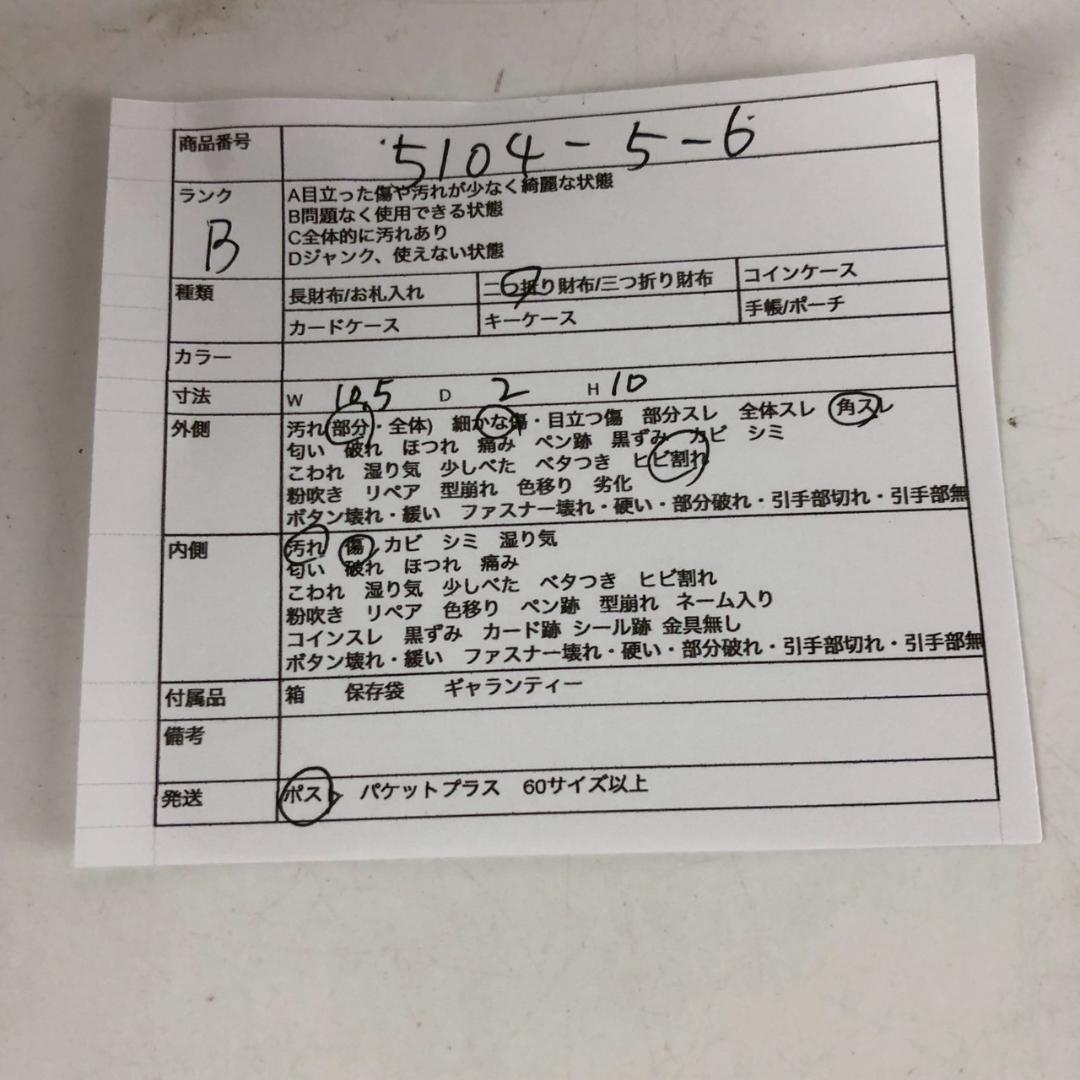 商品番号 5104-5-6
ランク B
A目立った傷や汚れが少なく綺麗な状態
B問題なく使用できる状態
C全体的に汚れあり
Dジャンク、使えない状態
種類 長財布/お札入れ 二つ折り財布/三つ折り財布 コインケース
カードケース キーケース 手帳/ポーチ
カラー
寸法 W 10.5 D 2 H 10
外側 汚れ(部分・全体) 細かな傷・目立つ傷 部分スレ 全体スレ 角スレ
匂い 破れ ほつれ 痛み ペン跡 黒ずみ カビ シミ
こわれ 湿り気 少しべた ベタつき ヒビ割れ
粉吹き リペア 型崩れ 色移り 劣化
ボタン壊れ・緩い ファスナー壊れ・硬い・部分破れ・引手部切れ・引手部無
内側 汚れ 傷 カビ シミ 湿り気
匂い 破れ ほつれ 痛み
こわれ 湿り気 少しべた ベタつき ヒビ割れ
粉吹き リペア 色移り ペン跡 型崩れ ネーム入り
コインスレ 黒ずみ カード跡 シール跡 金具無し
ボタン壊れ・緩い ファスナー壊れ・硬い・部分破れ・引手部切れ・引手部無
付属品 箱 保存袋 ギャランティー
備考
発送 ポスト パケットプラス 60サイズ以上